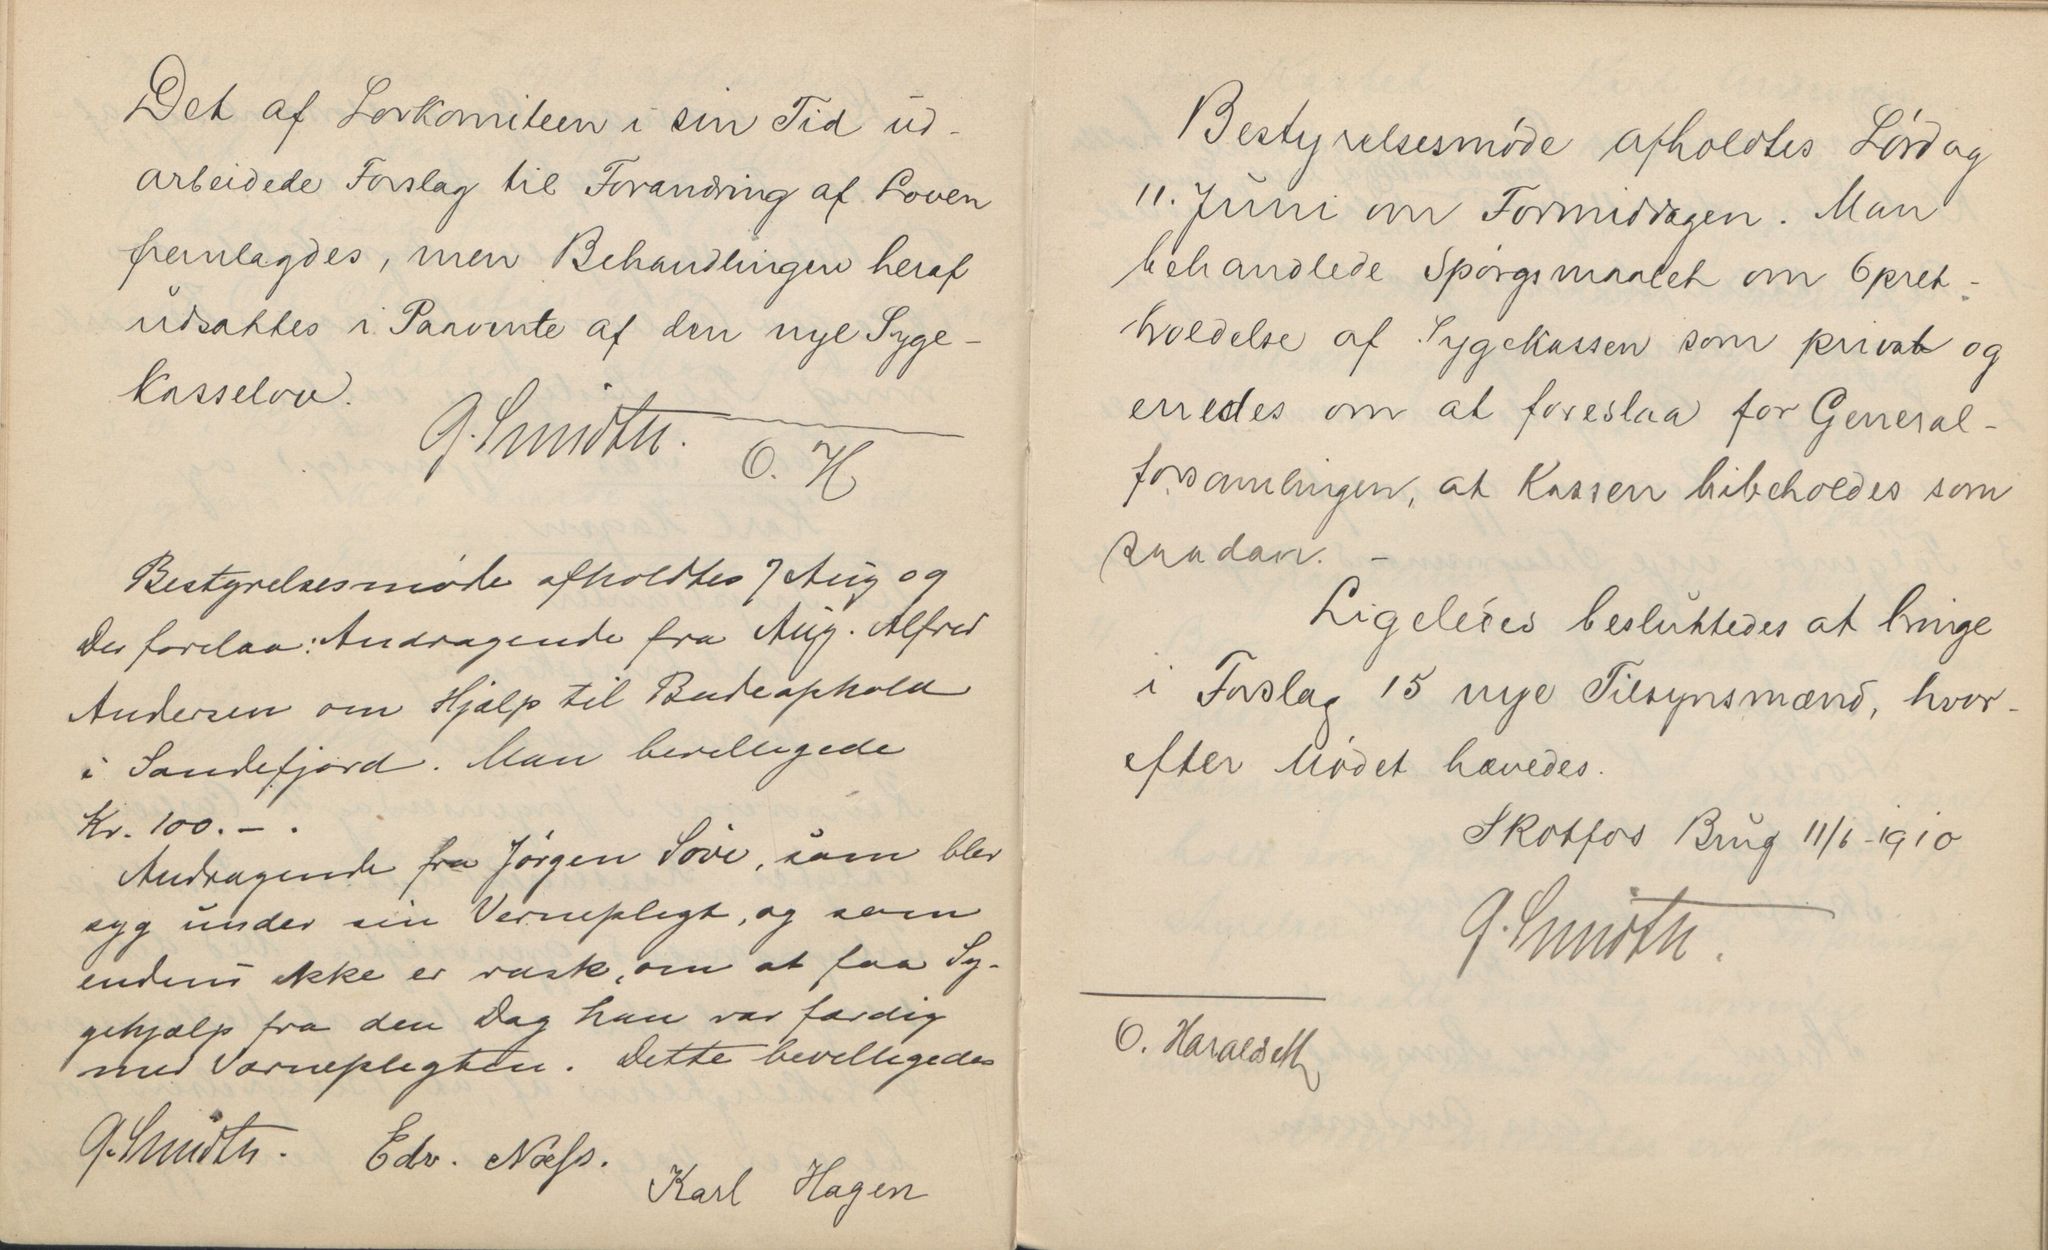 Det af Lovkomiteen i sin Tid ud-
arbeidede Forslag til Forandring af Loven
fremlagdes, men Behandlingen heraf
udsattes i Paavente af den nye Syge-
kasselov.
G. Smidth.
O. H
Bestyrelsesmöde afholdtes 7 Aug og
Der forelaa: Andragende fra Aug. Alfred
Andersen om Hjælp til Badeophold
i Sandefjord. Man bevilligede
Kr. 100.-.
Andragende fra Jörgen Söve, som blev
syg under sin Vernepligt, og som
endnu ikke er rask, om at faa Sy-
gehjælp fra den Dag han var færdig
med Værnepligten. Dette bevilligedes
G. Smidth. Edv. Næss.
Karl Hagen
Bestyrelsesmöde afholdtes Lördag
11. Juni om Formiddagen. Man
behandlede Spörgsmaalet om Opret-
holdelse af Sygekassen som privat og
enedes om at foreslaa for General-
forsamlingen, at Kassen bibeholdes som
saadan. -
Ligeledes besluttedes at bringe
i Forslag 15 nye Tilsynsmænd, hvor-
efter Mödet hævedes.
Skotfos Brug 11/6-1910
G. Smidth.
O. Haralds